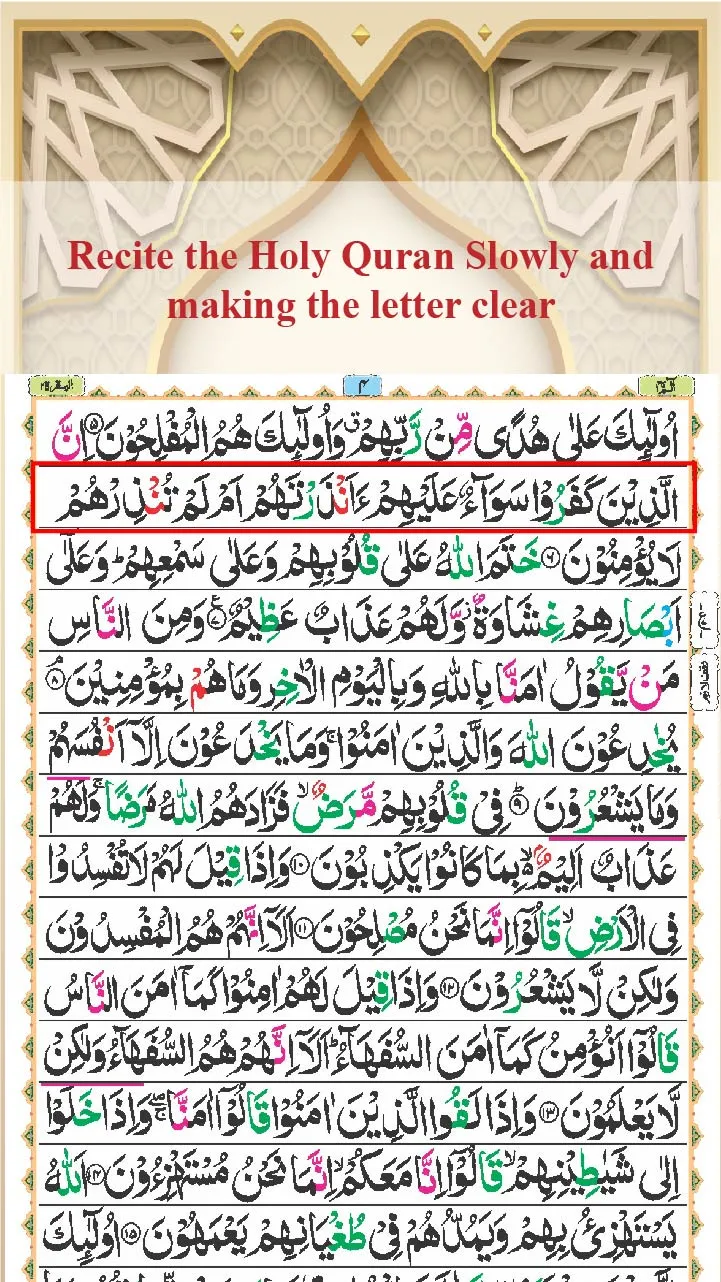 Recite the Holy Quran Slowly and
making the letter clear
البقرة ٢ ٤ الٓمّٓ ١
اُولٰٓئِكَ عَلٰى هُدًى مِّنْ رَّبِّهِمْ ۗ وَاُولٰٓئِكَ هُمُ الْمُفْلِحُوْنَ ۝٥ اِنَّ
الَّذِيْنَ كَفَرُوْا سَوَآءٌ عَلَيْهِمْ ءَاَنْذَرْتَهُمْ اَمْ لَمْ تُنْذِرْهُمْ
لَا يُؤْمِنُوْنَ ۝٦ خَتَمَ اللّٰهُ عَلٰى قُلُوْبِهِمْ وَعَلٰى سَمْعِهِمْ ؕ وَعَلٰٓى
اَبْصَارِهِمْ غِشَاوَةٌ ۫ وَّلَهُمْ عَذَابٌ عَظِيْمٌ ۝٧ وَمِنَ النَّاسِ
مَنْ يَّقُوْلُ اٰمَنَّا بِاللّٰهِ وَبِالْيَوْمِ الْاٰخِرِ وَمَا هُمْ بِمُؤْمِنِيْنَ ۝٨
يُخٰدِعُوْنَ اللّٰهَ وَالَّذِيْنَ اٰمَنُوْا ۚ وَمَا يَخْدَعُوْنَ اِلَّآ اَنْفُسَهُمْ
وَمَا يَشْعُرُوْنَ ۝٩ فِيْ قُلُوْبِهِمْ مَّرَضٌ ۙ فَزَادَهُمُ اللّٰهُ مَرَضًا ۚ وَلَهُمْ
عَذَابٌ اَلِيْمٌ ۢ ۙ بِمَا كَانُوْا يَكْذِبُوْنَ ۝١٠ وَاِذَا قِيْلَ لَهُمْ لَا تُفْسِدُوْا
فِى الْاَرْضِ ۙ قَالُوْٓا اِنَّمَا نَحْنُ مُصْلِحُوْنَ ۝١١ اَلَآ اِنَّهُمْ هُمُ الْمُفْسِدُوْنَ
وَلٰكِنْ لَّا يَشْعُرُوْنَ ۝١٢ وَاِذَا قِيْلَ لَهُمْ اٰمِنُوْا كَمَآ اٰمَنَ النَّاسُ
قَالُوْٓا اَنُؤْمِنُ كَمَآ اٰمَنَ السُّفَهَآءُ ؕ اَلَآ اِنَّهُمْ هُمُ السُّفَهَآءُ وَلٰكِنْ
لَّا يَعْلَمُوْنَ ۝١٣ وَاِذَا لَقُوا الَّذِيْنَ اٰمَنُوْا قَالُوْٓا اٰمَنَّا ۚ وَاِذَا خَلَوْا
اِلٰى شَيٰطِيْنِهِمْ ۙ قَالُوْٓا اِنَّا مَعَكُمْ ۙ اِنَّمَا نَحْنُ مُسْتَهْزِءُوْنَ ۝١٤ اَللّٰهُ
يَسْتَهْزِئُ بِهِمْ وَيَمُدُّهُمْ فِيْ طُغْيَانِهِمْ يَعْمَهُوْنَ ۝١٥ اُولٰٓئِكَ